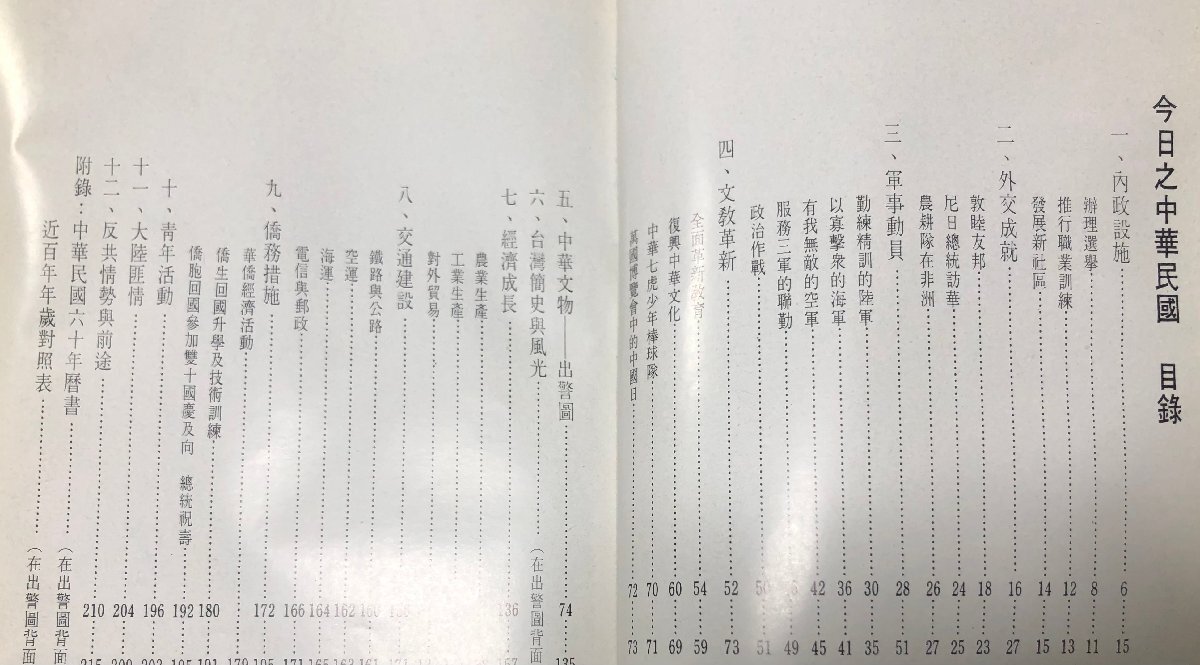 今日之中華民國 目錄
一、內政設施 6 15
辦理選舉 8 11
推行職業訓練 12 13
發展新社區 14 15
二、外交成就 16 27
敦睦友邦 18 23
尼日總統訪華 24 25
農耕隊在非洲 26 27
三、軍事動員 28 51
勤練精訓的陸軍 30 35
以寡擊衆的海軍 36 41
有我無敵的空軍 42 45
服務三軍的聯勤 49
政治作戰 50 51
四、文教革新 52 73
全面革新教育 54 59
復興中華文化 60 69
中華七虎少年棒球隊 70 71
萬國博覽會中的中國日 72 73
五、中華文物——出警圖 74 135
六、台灣簡史與風光 (在出警圖背面
七、經濟成長 136 157
農業生產
工業生產
對外貿易
八、交通建設
鐵路與公路 160 161
空運 162 163
海運 164 165
電信與郵政 166 171
九、僑務措施 172 195
華僑經濟活動 179
僑生回國升學及技術訓練 180 191
僑胞回國參加雙十國慶及向 總統祝壽 192 195
十、青年活動 196 203
十一、大陸匪情 204 209
十二、反共情勢與前途 210 215
附錄：中華民國六十年曆書 (在出警圖背面
近百年年歲對照表 (在出警圖背面